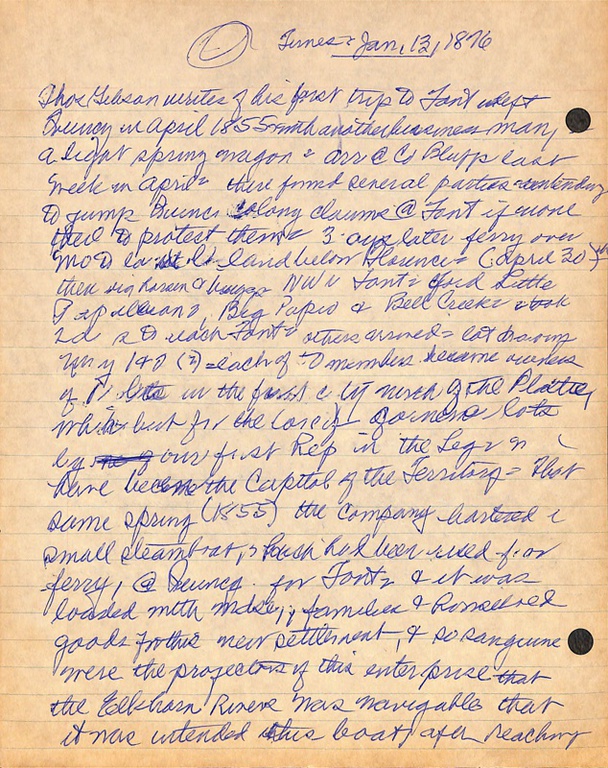 Times = Jan, 13, 1876
Thos Gibson writes of his first trip to Font = left
Quincy in April 1855 with another business man,
a light spring wagon = arr @ Co Bluffs last
week in April = there found several parties = contending
to jump Quincy Colony claims @ Font if none
there to protect them = 3 days later ferry over
Mo to land below Florence = (April 30
then rig horses & buggy NW to Font = ford Little
Papillions, Big Papio & Bell Creek = took
2d = to reach Font = others arrived = lot drawing
May 1 (?) = each of members became owners
of lots in the first city north of the Platte,
which but for the of lots
by our first Rep in the Legr
have become the Capital of the Territory = That
same spring (1855) the company
small steamboat, which had been used for
ferry, @ Quincy. for Font = & it was
loaded with mdse, families & household
goods for this new settlement, & so sanguine
were the projectors of this enterprise that
the Elkhorn River was navigable that
it was intended this boat, after reaching